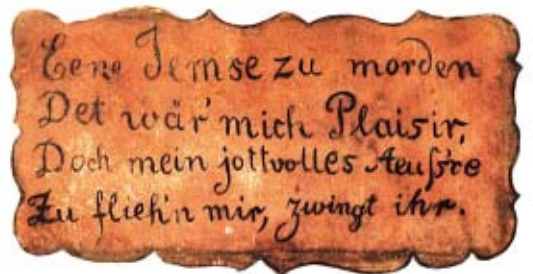 Eene Jemse zu morden
Det wär' mich Plaisir,
Doch mein jottvolles Aeuß're
Zu flieh'n mir, zwingt ihr.